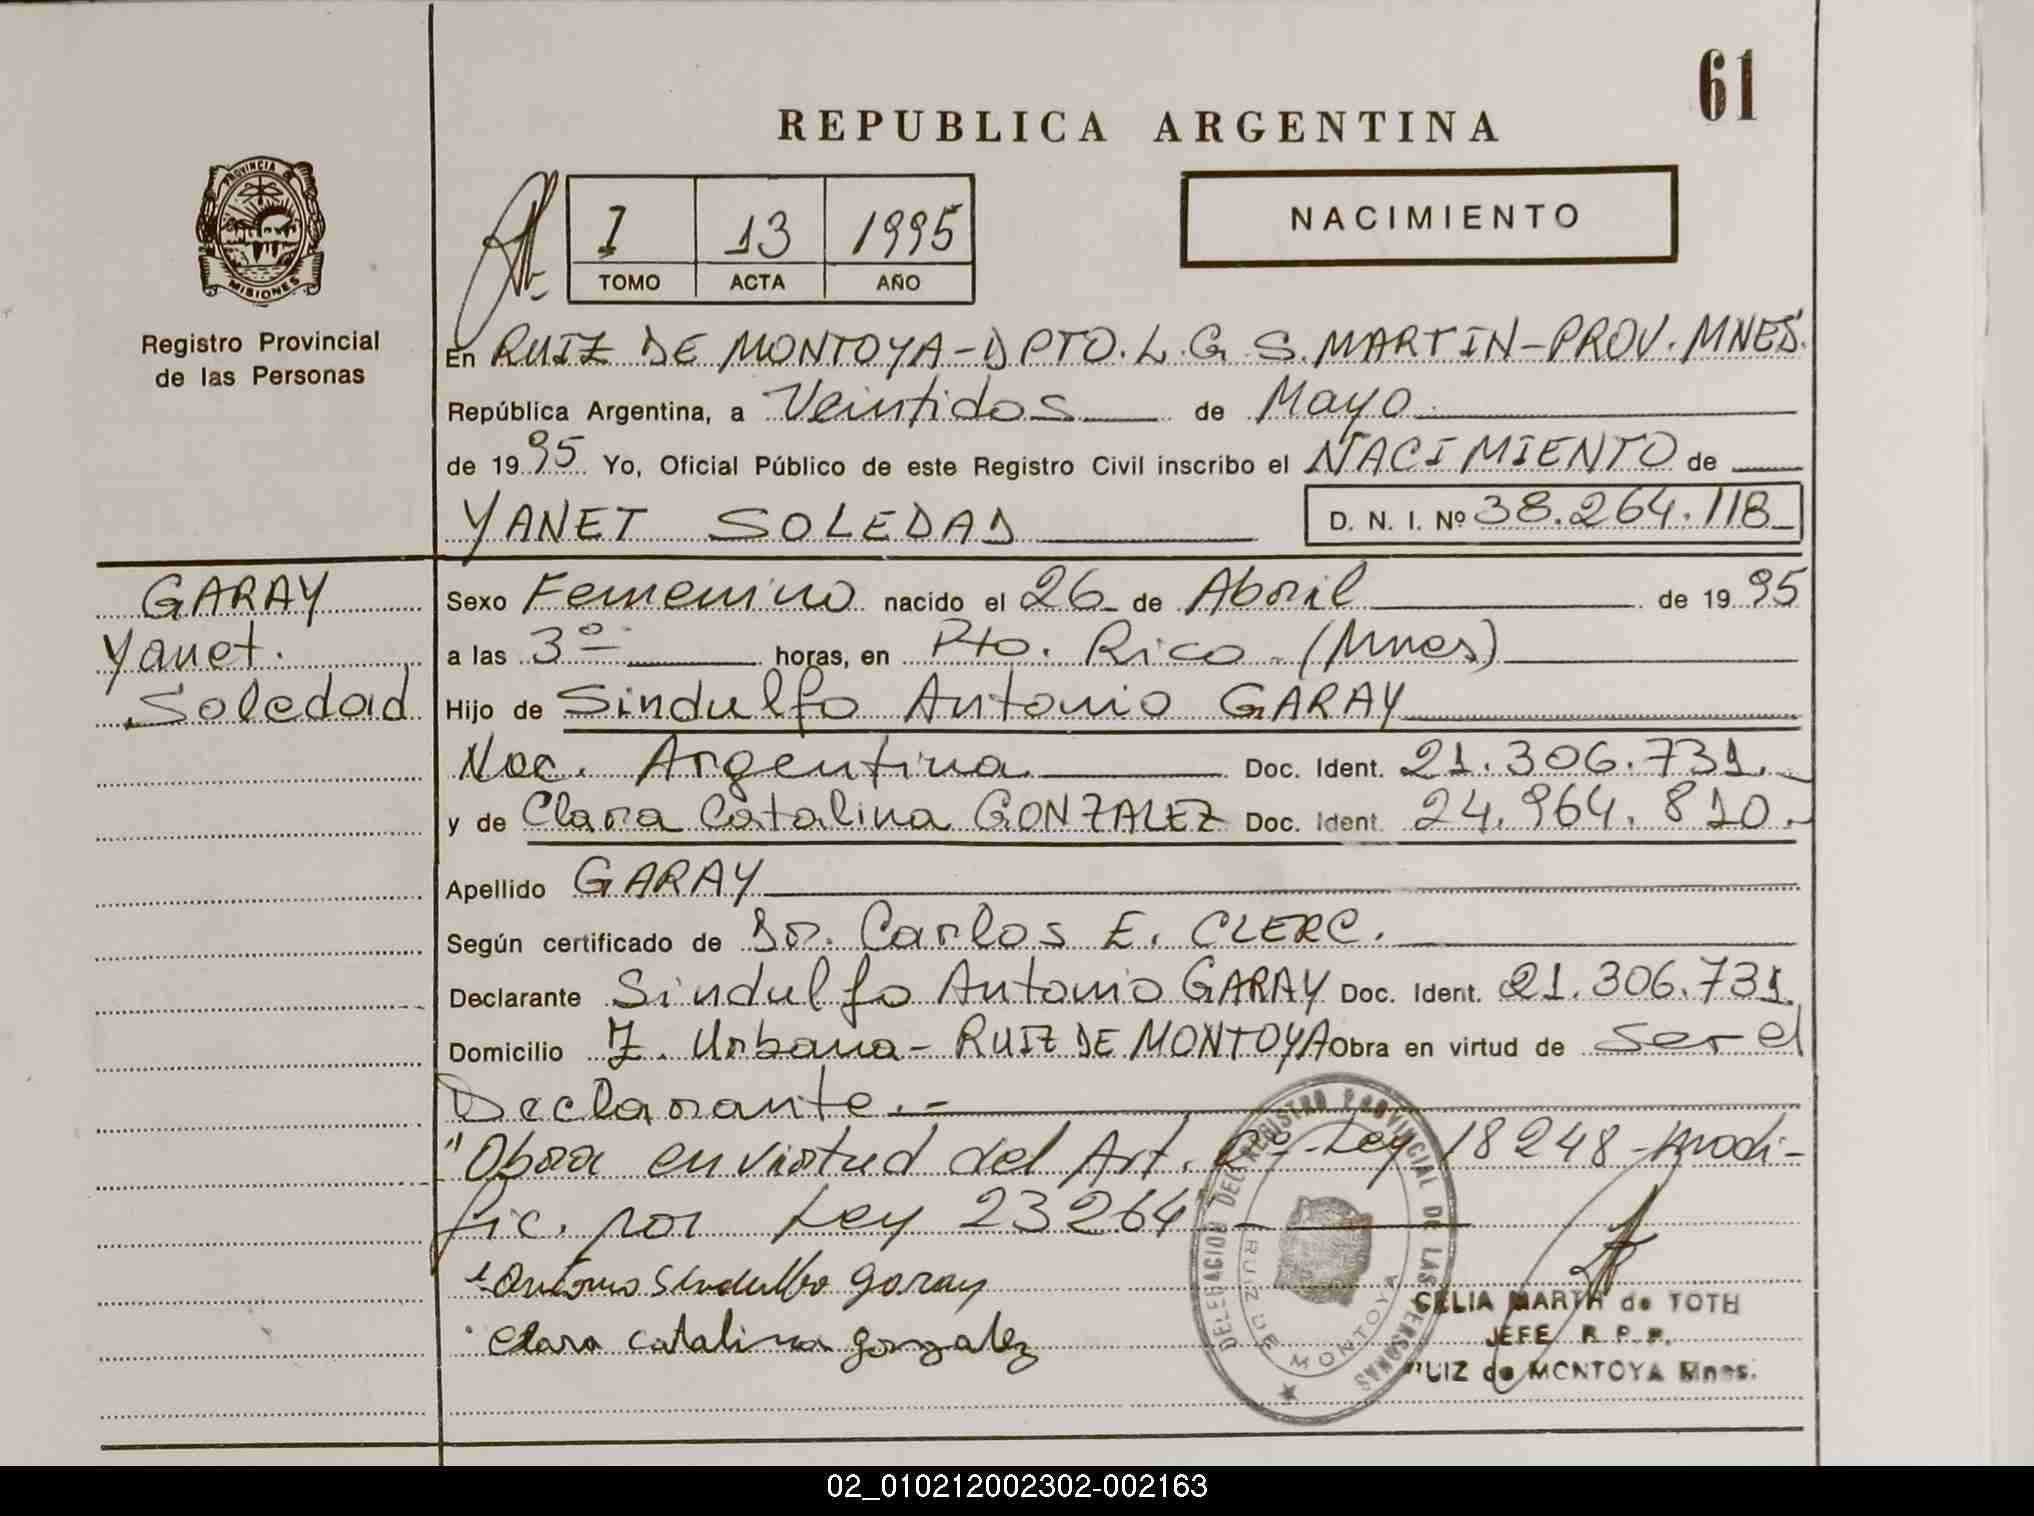 61
REPUBLICA ARGENTINA
PROVINCIA DE
MISIONES
Registro Provincial
de las Personas
1 13 1995
TOMO ACTA AÑO
NACIMIENTO
En RUIZ DE MONTOYA-DPTO. L.G.S. MARTIN-PROV. MNES.
República Argentina, a Veintidos de Mayo
de 1995 Yo, Oficial Público de este Registro Civil inscribo el NACIMIENTO de
YANET SOLEDAD D. N. I. Nº 38.264.118
GARAY
Yanet.
Soledad
Sexo Femenino nacido el 26 de Abril de 1995
a las 3º horas, en Pto. Rico (Mnes)
Hijo de Sindulfo Antonio GARAY
Nac. Argentina Doc. Ident. 21.306.731.-
y de Clara Catalina GONZALEZ Doc. Ident. 24.964.810.-
Apellido GARAY
Según certificado de Dr. Carlos E. CLERC.
Declarante Sindulfo Antonio GARAY Doc. Ident. 21.306.731.
Domicilio Z. Urbana-RUIZ DE MONTOYA Obra en virtud de ser el
Declarante.-
"Obra en virtud del Art. 2º-Ley 18248-modi-
fic. por Ley 23264"
Antonio Sindulfo garay
Clara catalina gonzalez
DELEGACION DEL REGISTRO PROVINCIAL DE LAS PERSONAS
RUIZ DE MONTOYA
CELIA MARTA de TOTH
JEFE R.P.P.
RUIZ de MONTOYA Mnes.
02_010212002302-002163